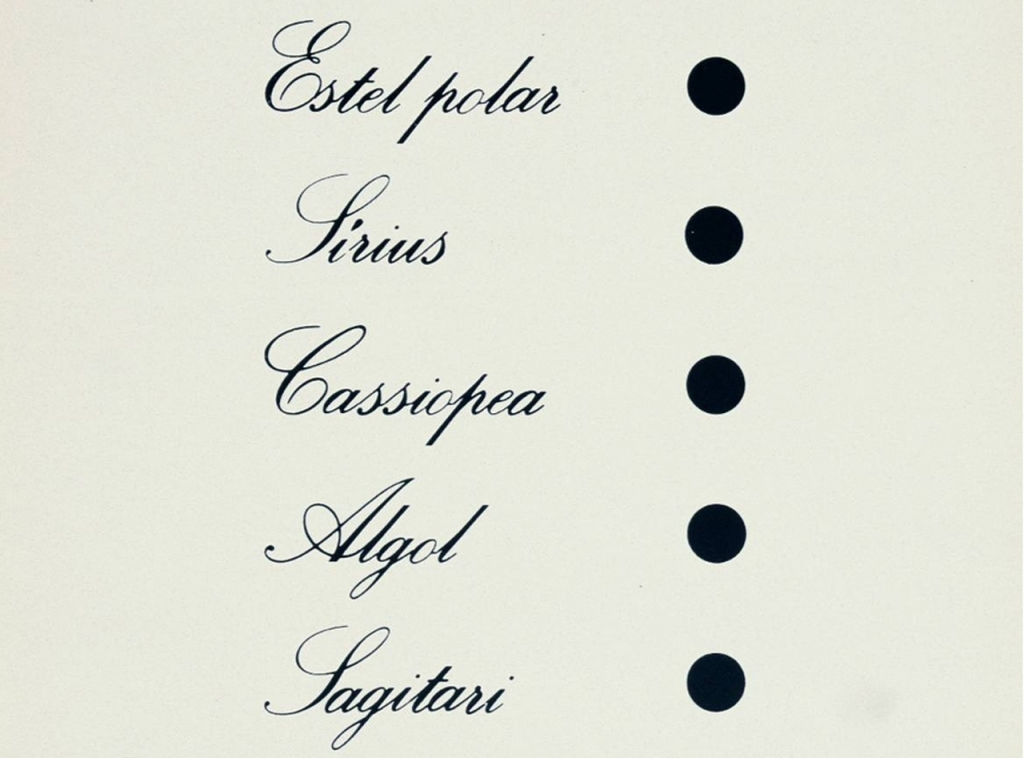 Estel polar
Sírius
Cassiopea
Algol
Sagitari